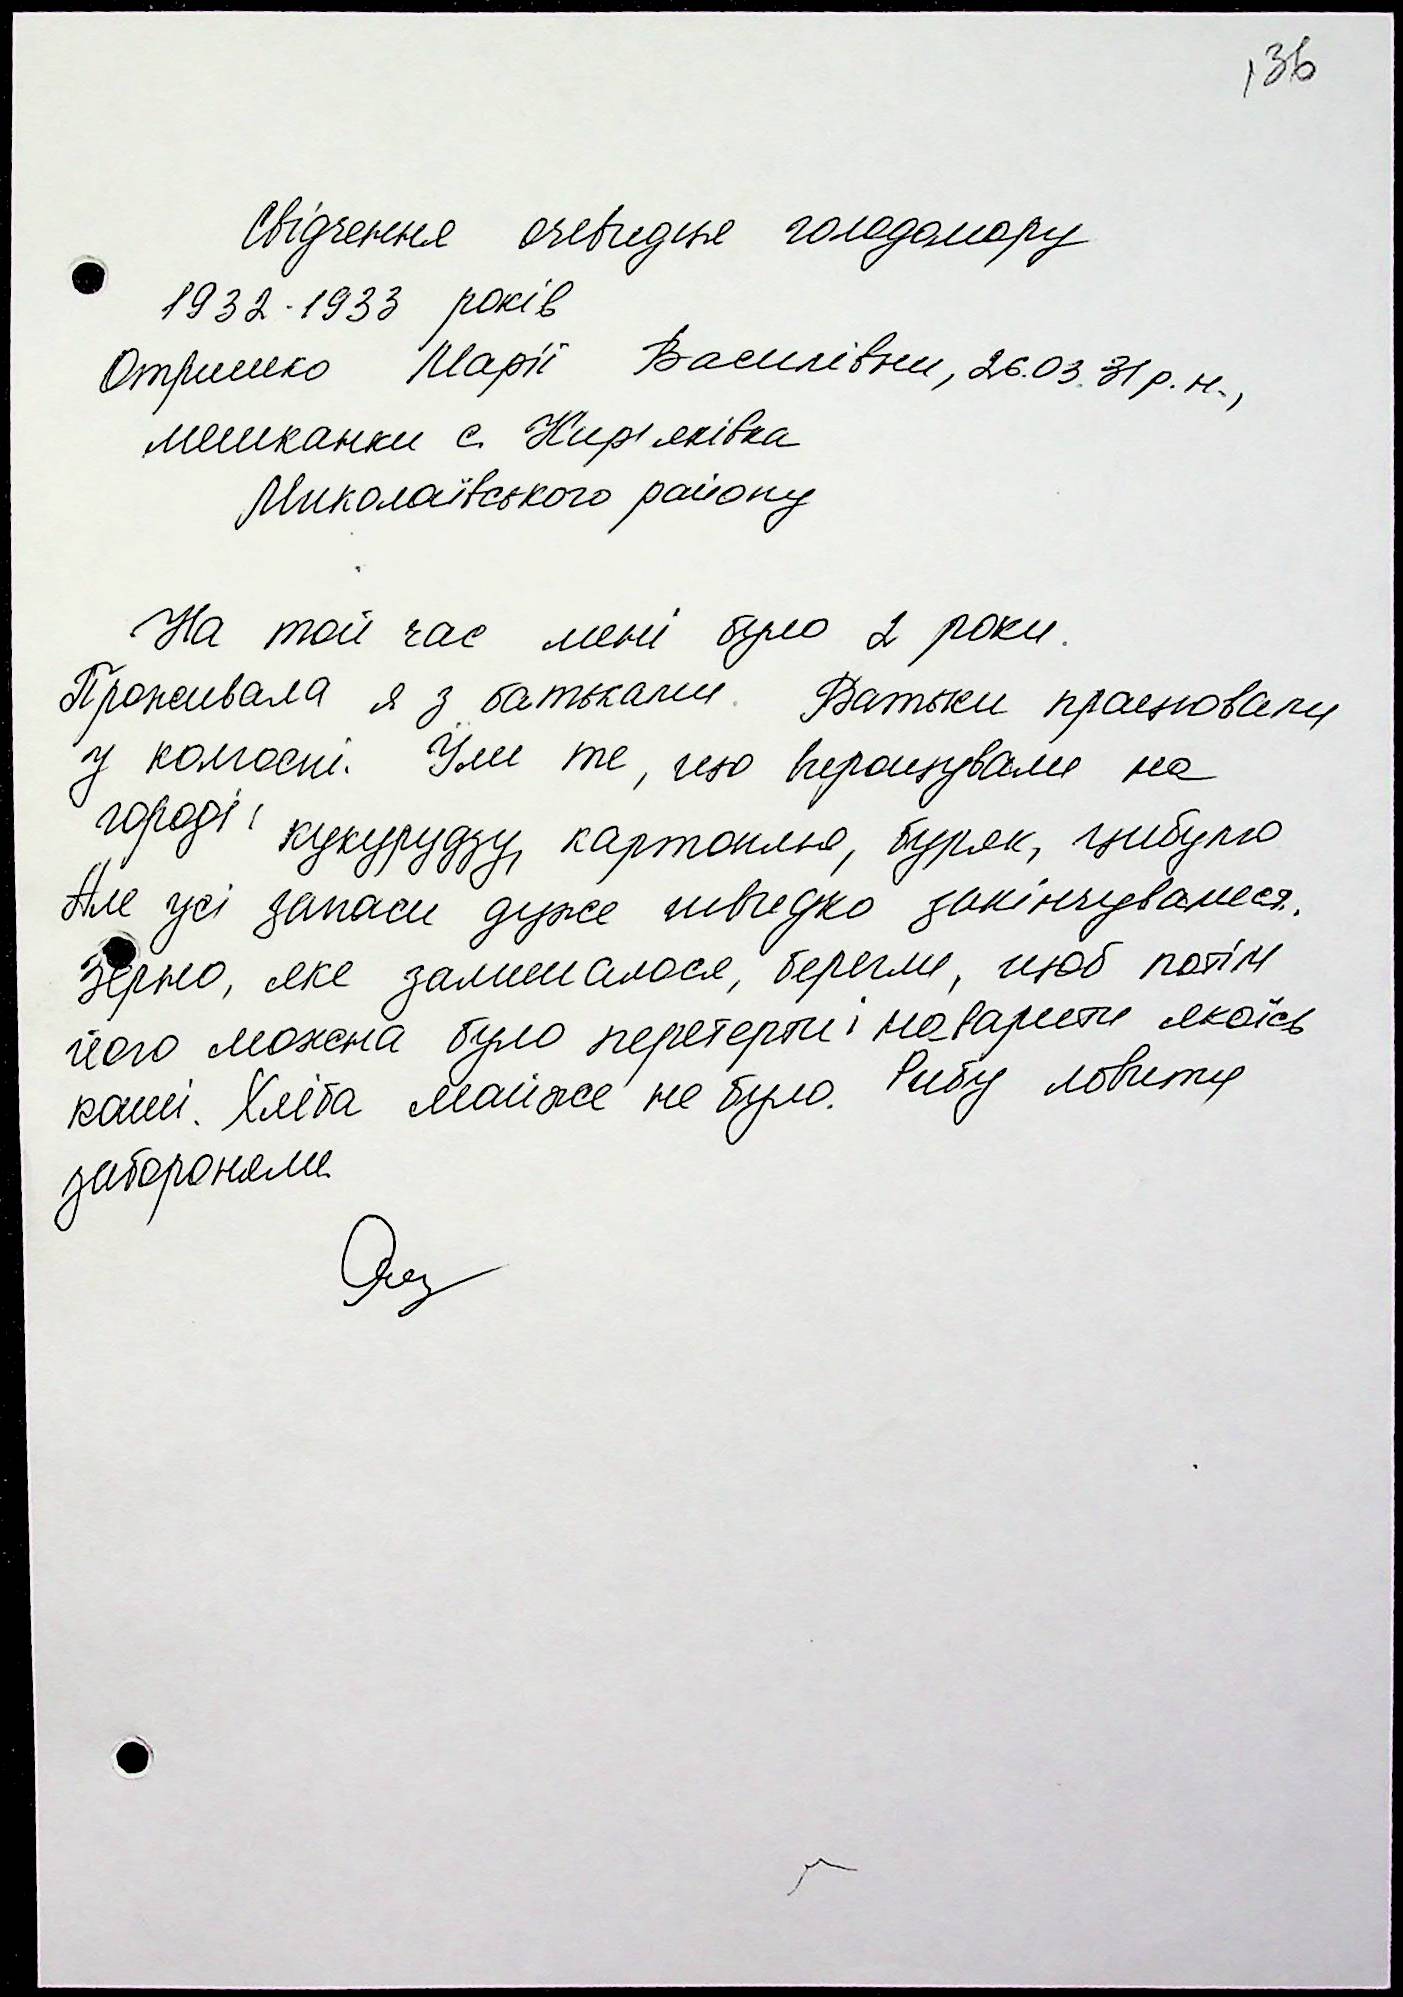 136
Свідчення очевидця голодомору
1932-1933 років
Отришко Марії Василівни, 26.03.31 р.н.,
мешканки с. Кир'яківка
Миколаївського району
На той час мені було 2 роки.
Проживала я з батьками. Батьки працювали
у колгоспі. Їли те, що вирощували на
городі: кукурудзу, картоплю, буряк, цибулю
Але усі запаси дуже швидко закінчувалися.
Зерно, яке залишалося, берегли, щоб потім
його можна було перетерти і наварити якоїсь
каші. Хліба майже не було. Рибу ловити
забороняли